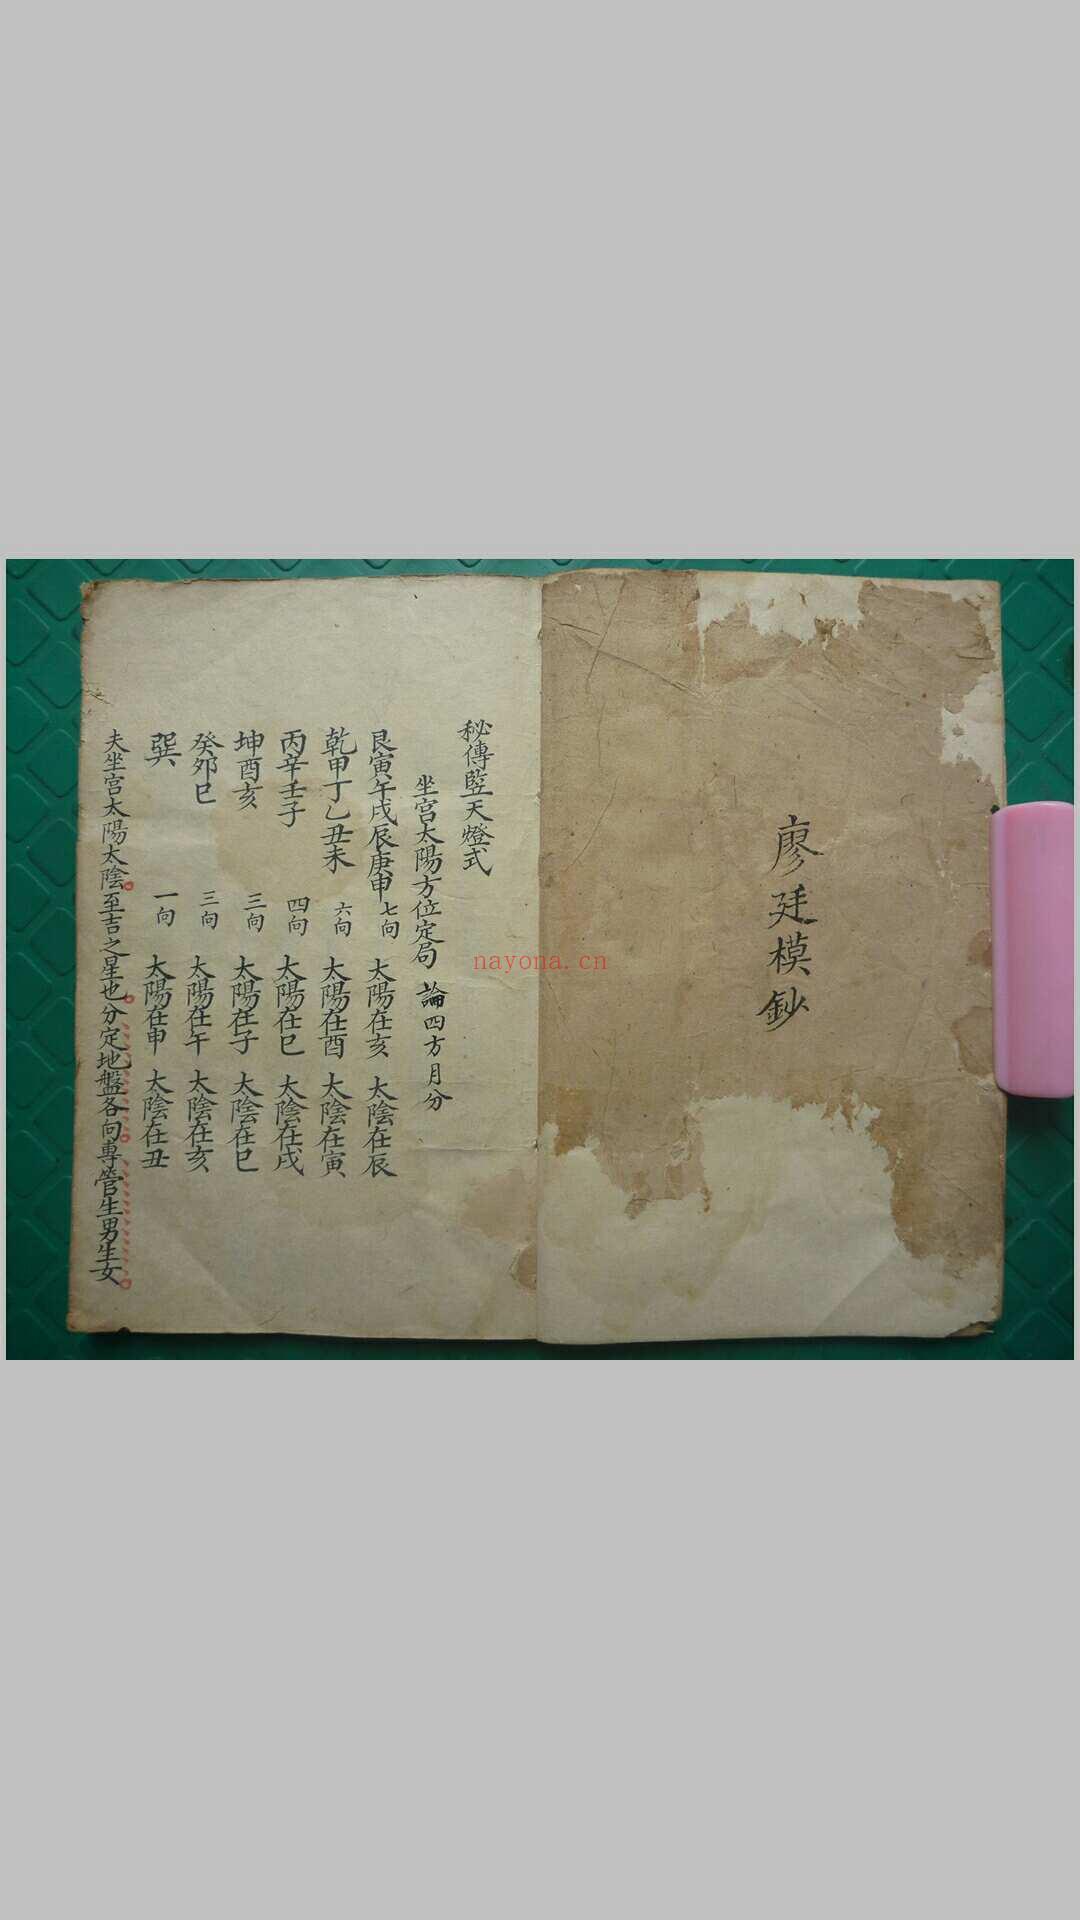 廖廷模鈔
秘傳竪天燈式
坐宮太陽方位定局 論四方月分
艮寅午戌辰庚申 七向 太陽在亥 太陰在辰
乾甲丁乙丑未 六向 太陽在酉 太陰在寅
丙辛壬子 四向 太陽在巳 太陰在戌
坤酉亥 三向 太陽在子 太陰在巳
癸夘巳 三向 太陽在午 太陰在亥
巽 一向 太陽在申 太陰在丑
夫坐宮太陽太陰至吉之星也分定地盤各向專管生男生女
nayona.cn